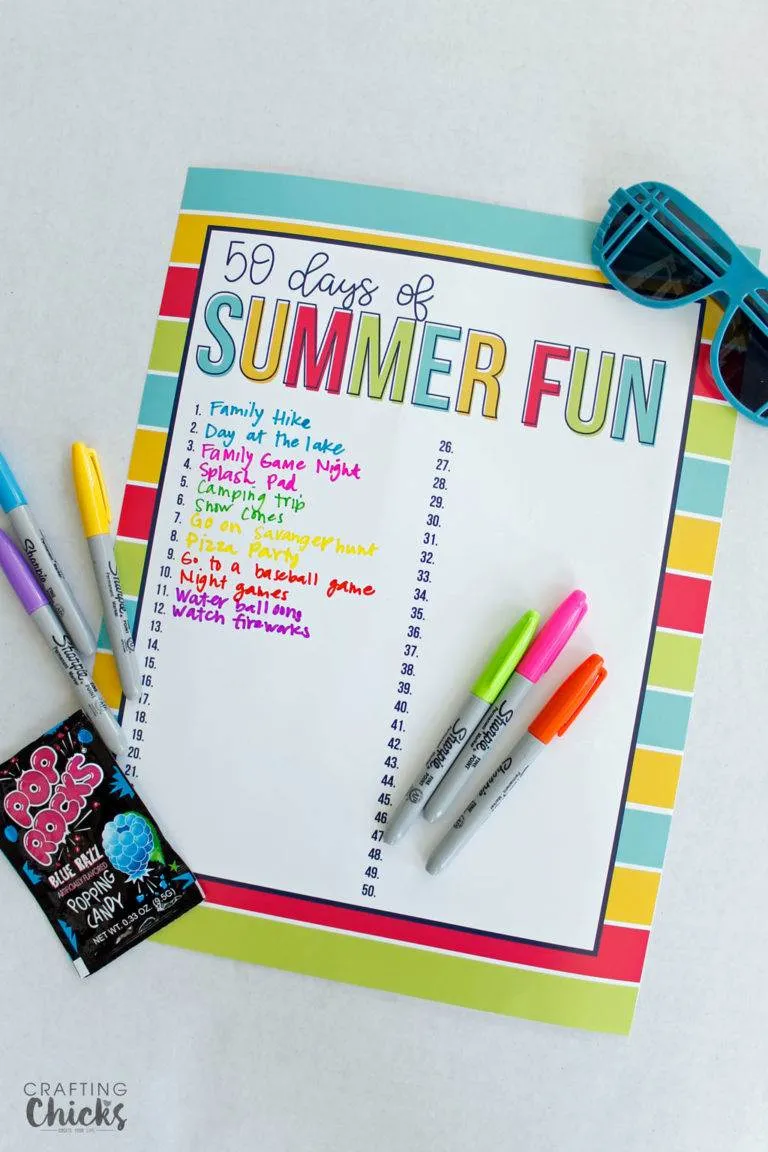 50 days of
SUMMER FUN
1. Family Hike
2. Day at the lake
3. Family Game Night
4. Splash Pad
5. Camping trip
6. Snow Cones
7. Go on Savanger hunt
8. Pizza Party
9. Go to a baseball game
10. Night games
11. Water balloons
12. Watch fireworks
13.
14.
15.
16.
17.
18.
19.
20.
21.
26.
27.
28.
29.
30.
31.
32.
33.
34.
35.
36.
37.
38.
39.
40.
41.
42.
43.
44.
45.
46.
47
48.
49.
50.
Sharpie
Sharpie
Sharpie
Sharpie
Sharpie
Sharpie
POP
ROCKS
BLUE RAZZ
ARTIFICIALLY FLAVORED
POPPING
CANDY
NET WT. 0.33 OZ. (9.5G)
CRAFTING
Chicks